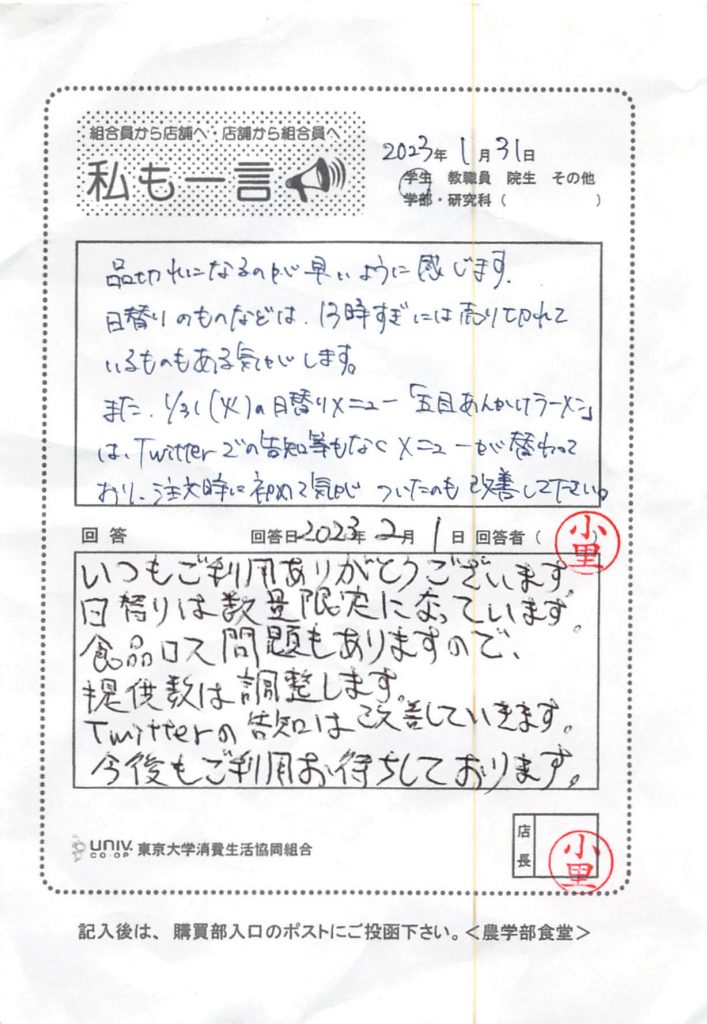 組合員から店舗へ・店舗から組合員へ
私も一言
2023年 1月31日
学生 教職員 院生 その他
学部・研究科( )
品切れになるのが早いように感じます。
日替りのものなどは、13時すぎには売り切れて
いるものもある気がします。
また、1/31(火)の日替りメニュー「五目あんかけラーメン」
は、Twitterでの告知等もなくメニューが替わって
おり、注文時に初めて気がついたのも改善して下さい。
回答 回答日 2023年 2月 1日 回答者( 小里 )
いつもご利用ありがとうございます。
日替りは数量限定になっています。
食品ロス問題もありますので、
提供数は調整します。
Twitterの告知は改善していきます。
今後もご利用お待ちしております。
UNIV. CO-OP 東京大学消費生活協同組合
店長 小里
記入後は、購買部入口のポストにご投函下さい。<農学部食堂>